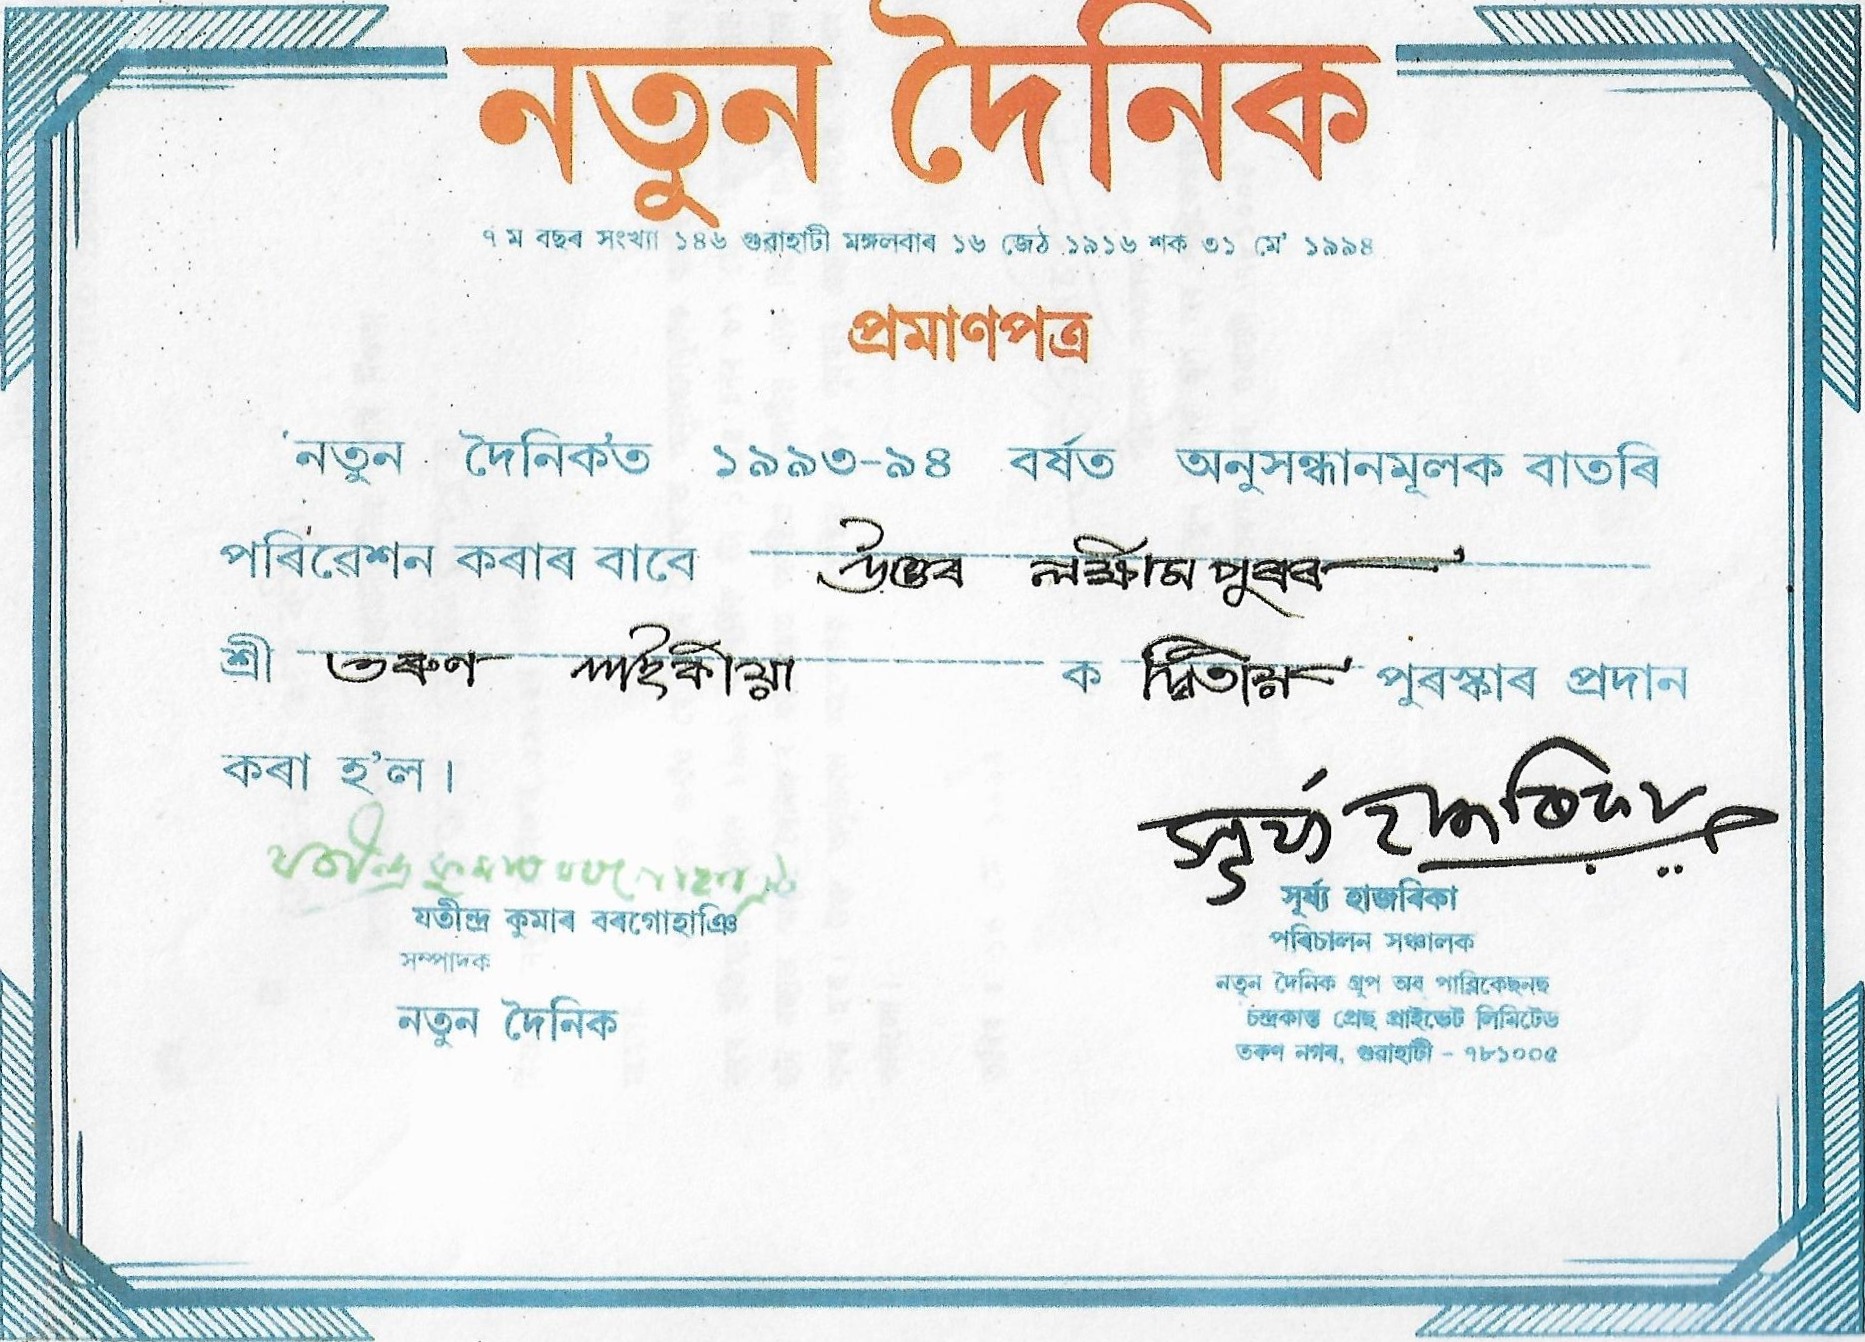 নতুন দৈনিক
৭ ম বছৰ সংখ্যা ১৪৬ গুৱাহাটী মঙ্গলবাৰ ১৬ জেঠ ১৯১৬ শক ৩১ মে' ১৯৯৪
প্ৰমাণপত্ৰ
'নতুন দৈনিক'ত ১৯৯৩-৯৪ বৰ্ষত অনুসন্ধানমূলক বাতৰি
পৰিৱেশন কৰাৰ বাবে উত্তৰ লক্ষীমপুৰৰ
শ্ৰী তৰুণ শইকীয়া ক দ্বিতীয় পুৰস্কাৰ প্ৰদান
কৰা হ'ল।
যতীন্দ্ৰ কুমাৰ বৰগোহাঞি
সূৰ্য্য হাজৰিকা
যতীন্দ্ৰ কুমাৰ বৰগোহাঞি
সম্পাদক
নতুন দৈনিক
সূৰ্য্য হাজৰিকা
পৰিচালন সঞ্চালক
নতুন দৈনিক গ্ৰুপ অব পাব্লিকেছনছ
চন্দ্ৰকান্ত প্ৰেছ প্ৰাইভেট লিমিটেড
তৰুণ নগৰ, গুৱাহাটী - ৭৮১০০৫